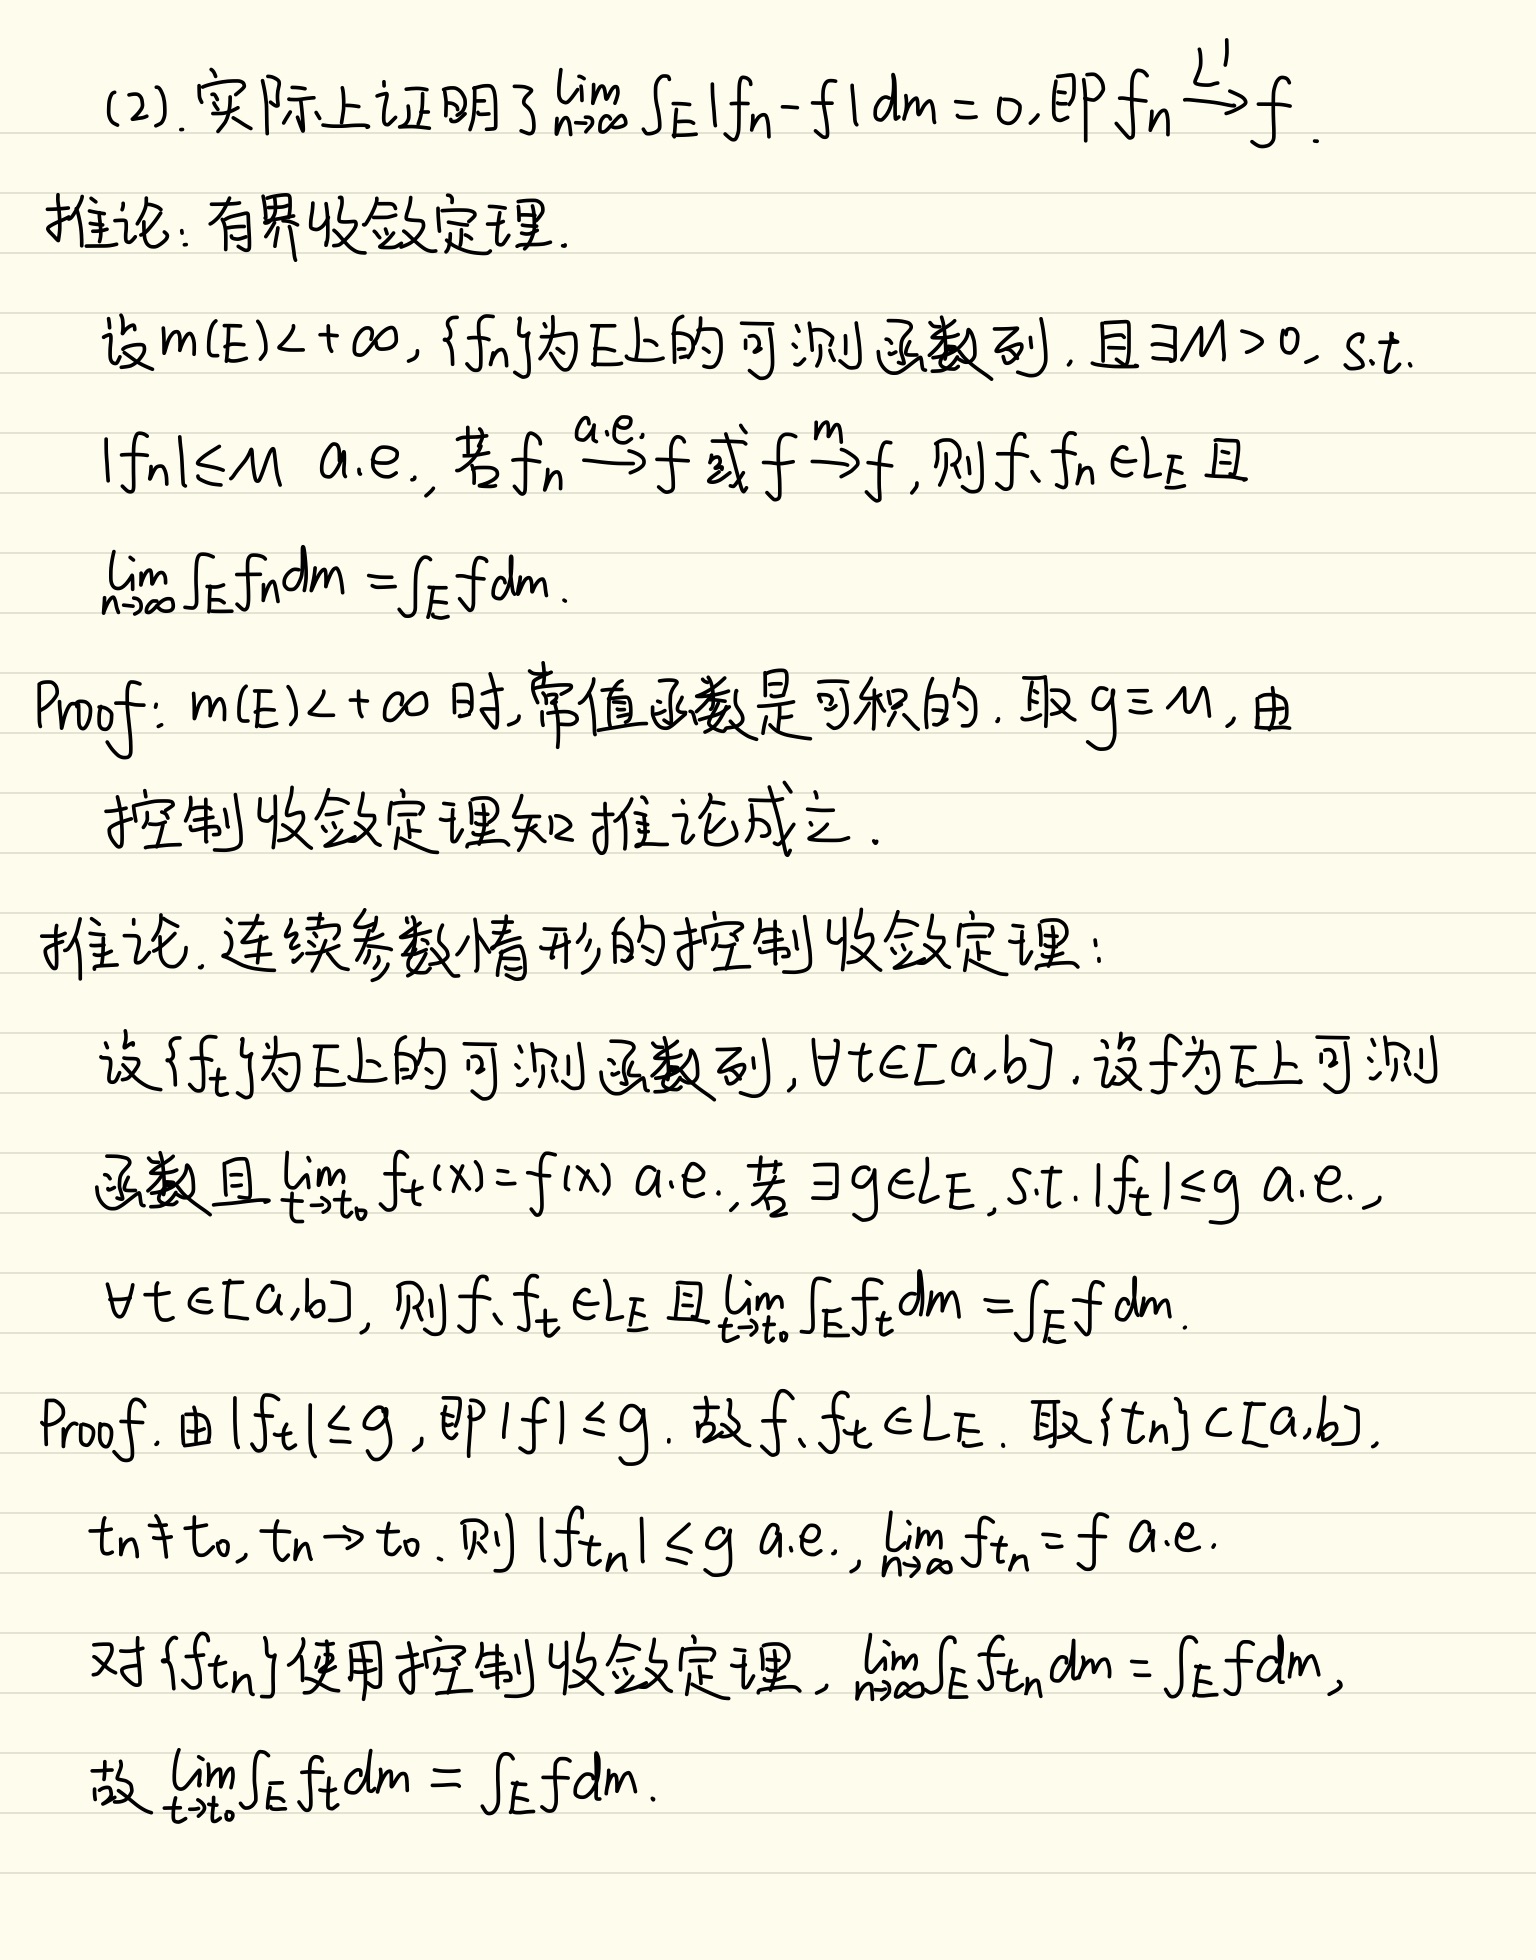 (2). 实际上证明了 lim_{n→∞} ∫_E |f_n - f| dm = 0, 即 f_n \xrightarrow{L^1} f.
推论: 有界收敛定理.
设 m(E) < +∞, {f_n}为E上的可测函数列. 且∃M > 0, s.t.
|f_n| ≤ M a.e., 若 f_n \xrightarrow{a.e.} f 或 f \xrightarrow{m} f, 则 f、f_n ∈ L_E 且
lim_{n→∞} ∫_E f_n dm = ∫_E f dm.
Proof: m(E) < +∞ 时, 常值函数是可积的. 取 g ≡ M, 由
控制收敛定理知推论成立.
推论. 连续参数情形的控制收敛定理:
设{f_t}为E上的可测函数列, ∀t∈[a,b]. 设f为E上可测
函数且 lim_{t→t_0} f_t(x) = f(x) a.e., 若 ∃g∈L_E, s.t. |f_t| ≤ g a.e.,
∀t∈[a,b], 则 f、f_t ∈ L_E 且 lim_{t→t_0} ∫_E f_t dm = ∫_E f dm.
Proof. 由 |f_t| ≤ g, 即 |f| ≤ g. 故 f、f_t ∈ L_E. 取{t_n} ⊂ [a,b].
t_n ≠ t_0, t_n → t_0. 则 |f_{t_n}| ≤ g a.e., lim_{n→∞} f_{t_n} = f a.e.
对{f_{t_n}}使用控制收敛定理, lim_{n→∞} ∫_E f_{t_n} dm = ∫_E f dm,
故 lim_{t→t_0} ∫_E f_t dm = ∫_E f dm.